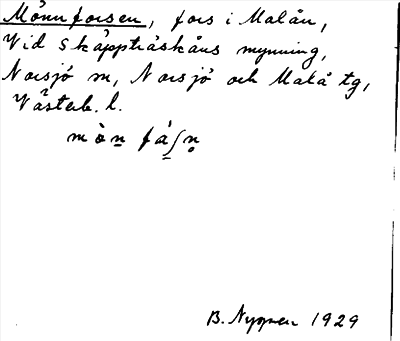 Mönnforsen, fors i Malån,
Vid Skäppträskåns mynning,
Norsjö sn, Norsjö och Malå tg,
Västerb. l.
mò̀n fá̱ʃn̥
B. Nyman 1929